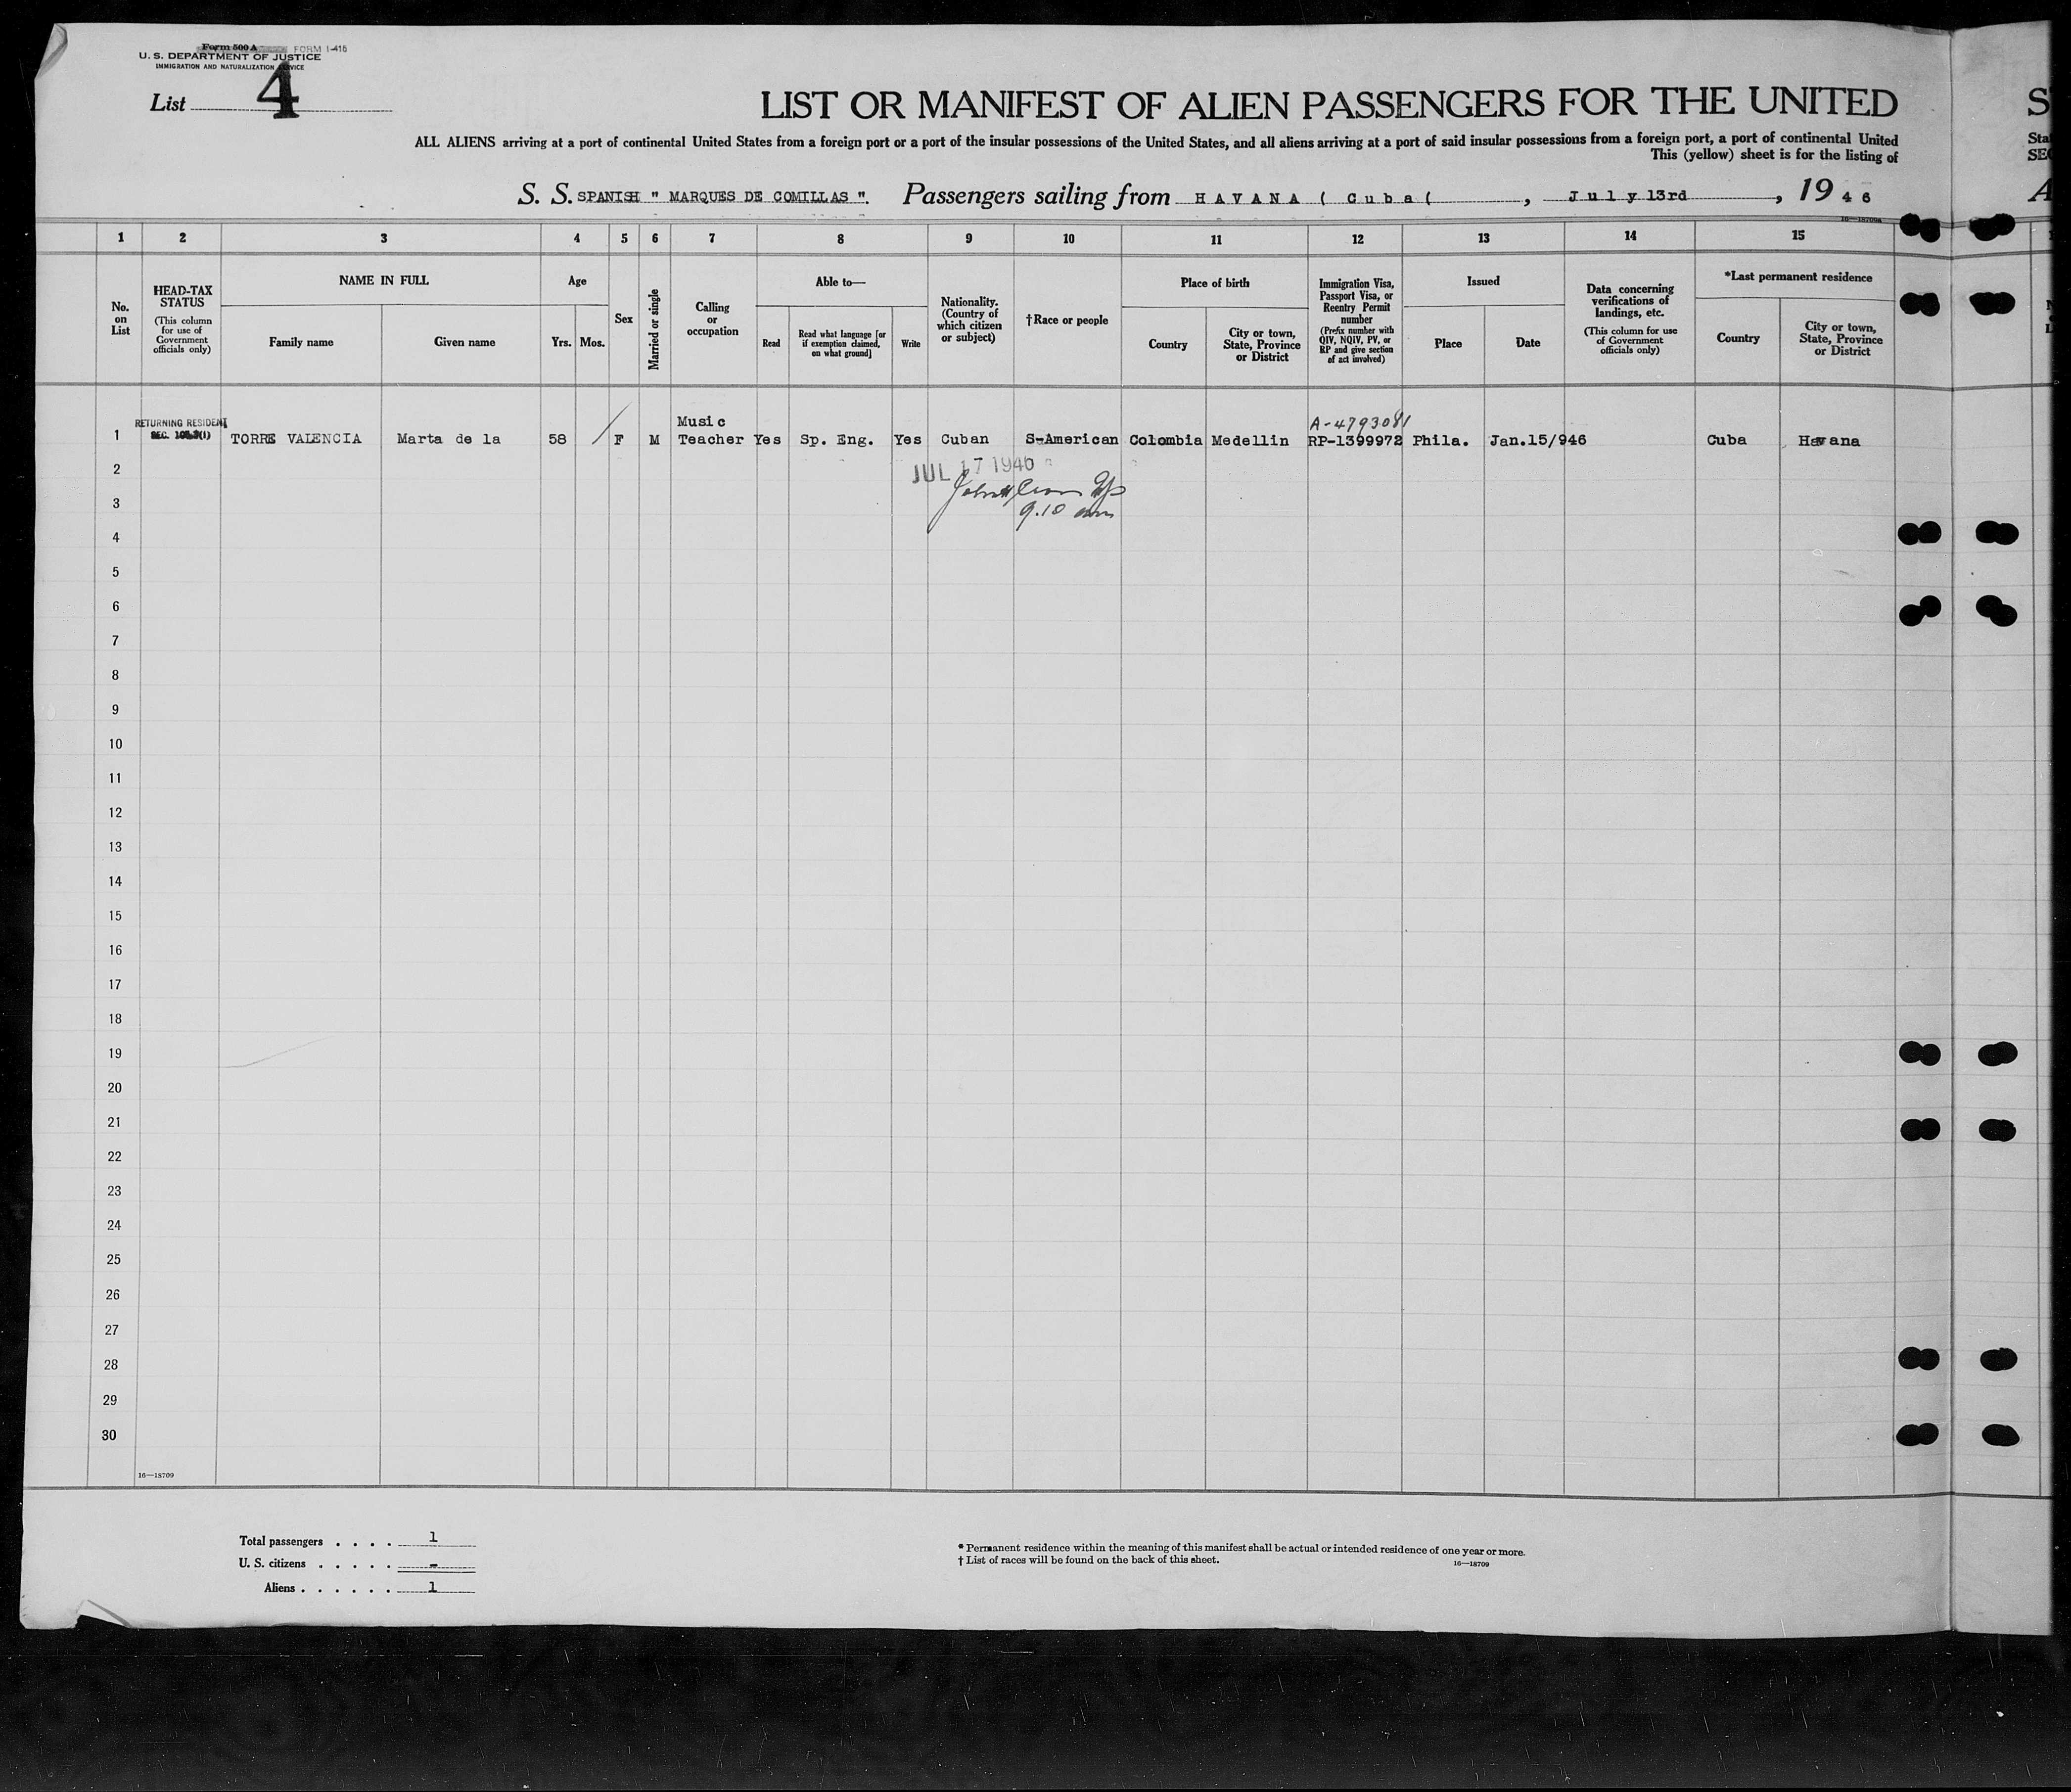 Form 500 A FORM I-415
U. S. DEPARTMENT OF JUSTICE
IMMIGRATION AND NATURALIZATION SERVICE
List 4
LIST OR MANIFEST OF ALIEN PASSENGERS FOR THE UNITED S
ALL ALIENS arriving at a port of continental United States from a foreign port or a port of the insular possessions of the United States, and all aliens arriving at a port of said insular possessions from a foreign port, a port of continental United Sta
This (yellow) sheet is for the listing of SEC
S. S. SPANISH " MARQUES DE COMILLAS ". Passengers sailing from HAVANA ( Cuba( , July 13rd , 19 46 A
16—18709a
1 2 3 4 5 6 7 8 9 10 11 12 13 14 15
No. on List
HEAD-TAX STATUS
(This column for use of Government officials only)
NAME IN FULL
Family name
Given name
Age
Yrs. Mos.
Sex
Married or single
Calling or occupation
Able to—
Read
Read what language [or if exemption claimed, on what ground]
Write
Nationality. (Country of which citizen or subject)
†Race or people
Place of birth
Country
City or town, State, Province or District
Immigration Visa, Passport Visa, or Reentry Permit number
(Prefix number with QIV, NQIV, PV, or RP and give section of act involved)
Issued
Place
Date
Data concerning verifications of landings, etc.
(This column for use of Government officials only)
*Last permanent residence
Country
City or town, State, Province or District
RETURNING RESIDENT Music A-4793081
1 TORRE VALENCIA Marta de la 58 F M Teacher Yes Sp. Eng. Yes Cuban S-American Colombia Medellin RP-1399972 Phila. Jan.15/946 Cuba Havana
2 JUL 17 1946
3 9.10 am
4
5
6
7
8
9
10
11
12
13
14
15
16
17
18
19
20
21
22
23
24
25
26
27
28
29
30
16—18709
Total passengers . . . . 1
U. S. citizens . . . . . -
Aliens . . . . . . 1
* Permanent residence within the meaning of this manifest shall be actual or intended residence of one year or more.
† List of races will be found on the back of this sheet.
16—18709